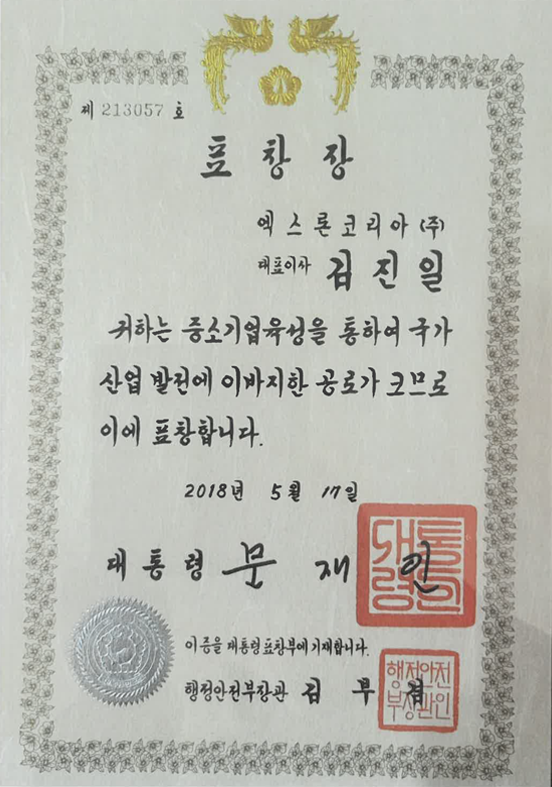 제 213057 호
표창장
엑스론코리아(주)
대표이사 김진일
귀하는 중소기업육성을 통하여 국가
산업 발전에 이바지한 공로가 크므로
이에 표창합니다.
2018년 5월 17일
대통령 문재인
대통령의인
이 증을 대통령표창부에 기재합니다.
행정안전부장관 김부겸
행정안전
부장관인